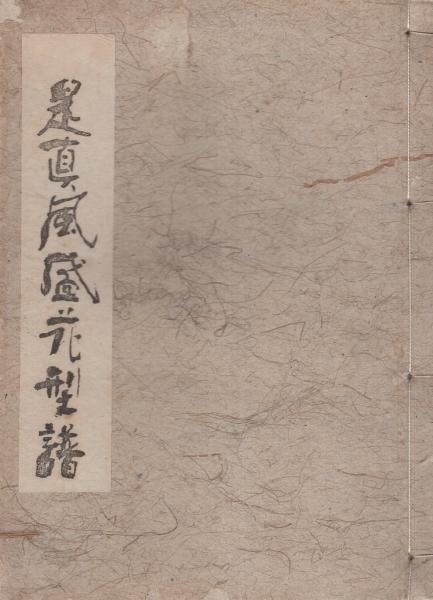 是真風盛花型譜